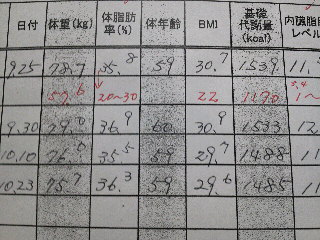 日付 体重(kg) 体脂肪率(%) 体年齢 BMI 基礎代謝量(kcal) 内臓脂肪レベル
9.25 78.7 35.8 59 30.7 1539 11.
20~30 22 1190 1~
9.30 79.0 36.9 60 30.9 1533 12
10.10 76.0 35.5 59 29.7 1488 11
10.23 75.7 36.3 59 29.6 1485 11